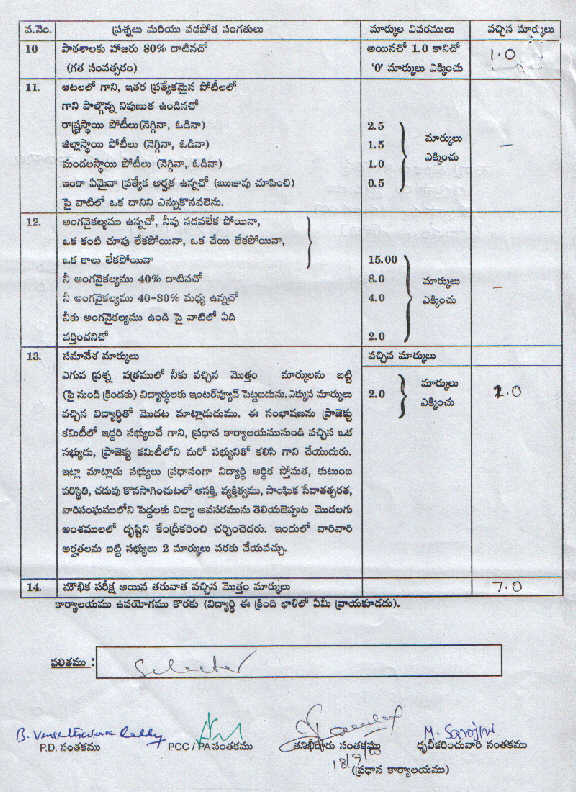 వ.నెం. ప్రశ్నలు మరియు వడపోత సంగతులు మార్కుల వివరములు వచ్చిన మార్కులు
10 పాఠశాలకు హాజరు 80% దాటినచో అయినలో 1.0 కానిచో 1.0
(గత సంవత్సరం) '0' మార్కులు ఎక్కించు
11. ఆటలలో గాని, ఇతర ప్రత్యేకమైన పోటీలలో
గాని పాల్గొన్న నిపుణుక ఉండినచో
రాష్ట్రస్థాయి పోటీలు(నెగ్గినా, ఓడినా) 2.5 మార్కులు
జిల్లాస్థాయి పోటీలు (నెగ్గినా, ఓడినా) 1.5 ఎక్కించు –
మండలస్థాయి పోటీలు (నెగ్గినా, ఓడినా) 1.0
ఇంకా ఏమైనా ప్రత్యేక అర్హత ఉన్నచో (ఋజువు చూపించి) 0.5
పై వాటిలో ఒక దానిని ఎన్నుకొనవలెను.
12. అంగవైకల్యము ఉన్నచో, నీవు నడవలేక పోయినా,
ఒక కంటి చూపు లేకపోయినా, ఒక చేయి లేకపోయినా,
ఒక కాలు లేకపోయినా 15.00
నీ అంగవైకల్యము 40% దాటినచో 8.0 మార్కులు
నీ అంగవైకల్యము 40-80% మధ్య ఉన్నచో 4.0 ఎక్కించు –
నీకు అంగవైకల్యము ఉండి పై వాటిలో ఏది
వర్తించనిచో 2.0
13. సమావేశ మార్కులు వచ్చిన మార్కులు
ఎగువ ప్రశ్న పత్రములో నీకు వచ్చిన మొత్తం మార్కులను బట్టి మార్కులు
(పై నుండి క్రిందకు) విద్యార్థులకు ఇంటర్వ్యూన్ పెట్టబడును. ఎక్కువ మార్కులు 2.0 ఎక్కించు 1.0
వచ్చిన విద్యార్థితో మొదట మాట్లాడుదుము. ఈ సంభాషణను ప్రాజెక్టు
కమిటీలో ఇద్దరి సభ్యులచే గాని, ప్రధాన కార్యాలయమునుండి వచ్చిన ఒక
సభ్యుడు, ప్రాజెక్టు కమిటీలోని మరో సభ్యునితో కలిసి గాని చేయుదురు.
ఇట్లా మాట్లాడు సభ్యులు ప్రధానంగా విద్యార్థి ఆర్థిక స్తోమత, కుటుంబ
పరిస్థితి, చదువు కొనసాగించుటలో ఆసక్తి, వ్యక్తిత్వము, సాంఘిక సేవాతత్పరత,
వారిసంఘములోని పెద్దలకు విద్యా అవసరమును తెలియజెప్పుట మొదలగు
అంశములలో దృష్టిని కేంద్రీకరించి చర్చించెదరు. ఇందులో వారివారి
అర్హతలను బట్టి సభ్యులు 2 మార్కులు వరకు చేయవచ్చు.
14. మౌఖిక పరీక్ష అయిన తరువాత వచ్చిన మొత్తం మార్కులు 7.0
కార్యాలయము ఉపయోగము కొరకు (విద్యార్థి ఈ క్రింది ఖాళీలో ఏమీ వ్రాయకూడదు).
ఫలితము : Selected
B. Venkateswara Reddy M. Sarojini
P.D. సంతకము PCC / PA సంతకము తనిఖీదారు సంతకము ధృవీకరించువారి సంతకము
18/9/
(ప్రధాన కార్యాలయము)